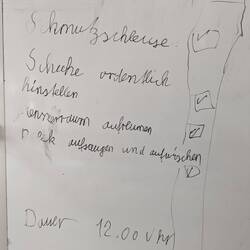 Schmutzschleuse.
Schuhe ordentlich
hinstellen
aufräumen
aufsaugen und aufwischen
Dauer 12.00 Uhr